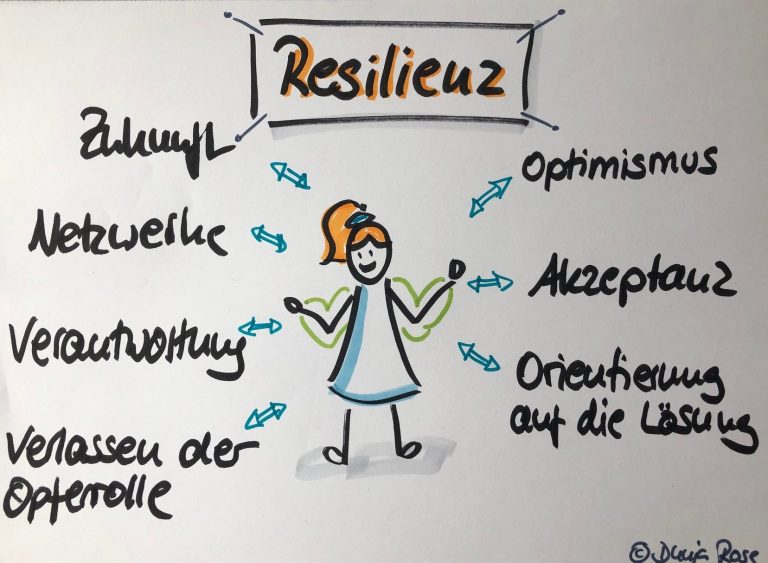 Resilienz
Zukunft
Netzwerke
Verantwortung
Verlassen der
Opferrolle
Optimismus
Akzeptanz
Orientierung
auf die Lösung
© Rose